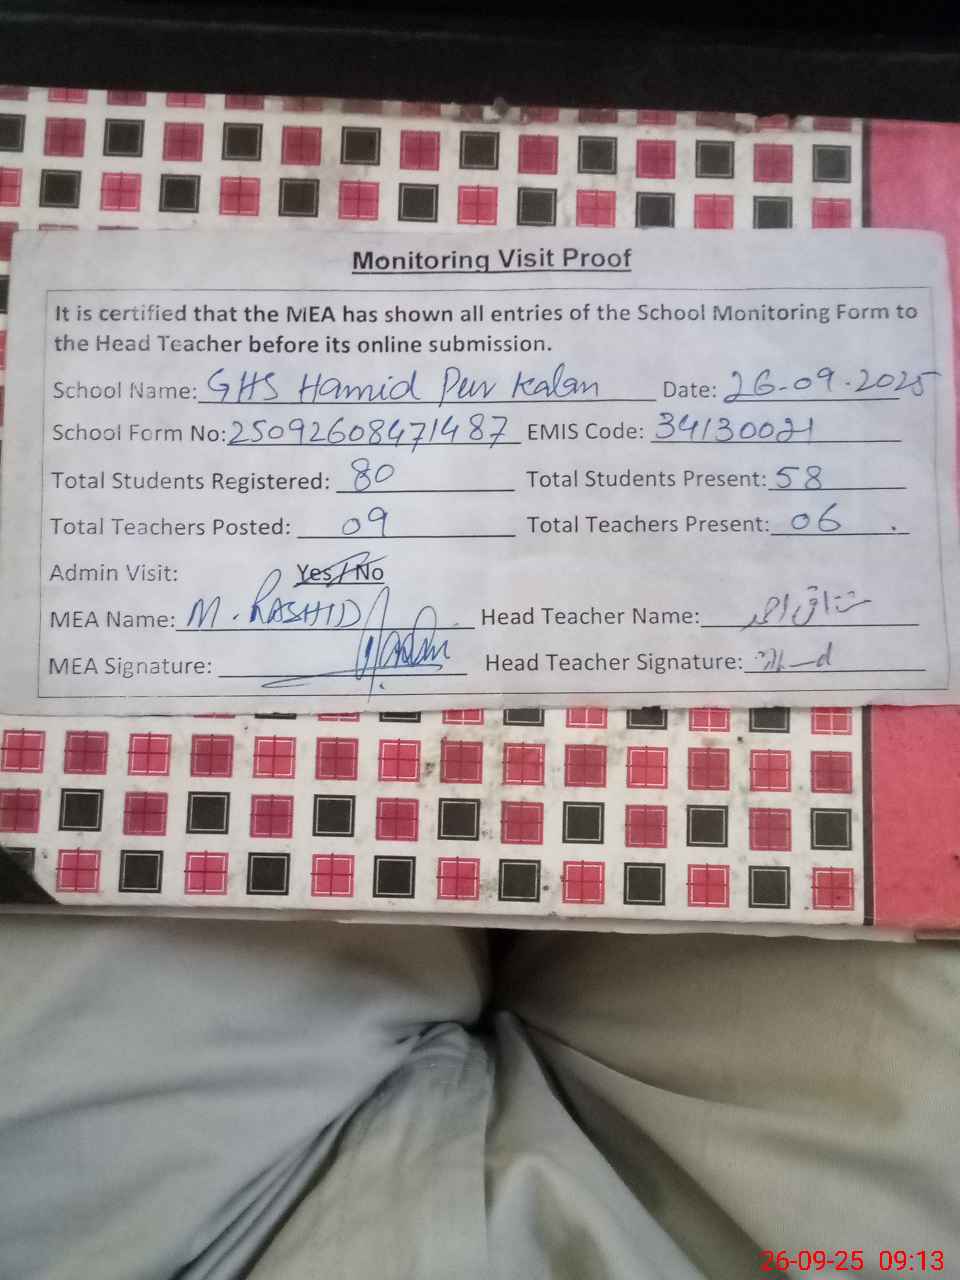 Monitoring Visit Proof
It is certified that the MEA has shown all entries of the School Monitoring Form to
the Head Teacher before its online submission.
School Name: GHS Hamid Pur Kalan Date: 26-09-2025
School Form No: 25092608471487 EMIS Code: 34130021
Total Students Registered: 80 Total Students Present: 58
Total Teachers Posted: 09 Total Teachers Present: 06
Admin Visit: Yes/No
MEA Name: M. RASHID Head Teacher Name:
MEA Signature: Head Teacher Signature:
26-09-25 09:13